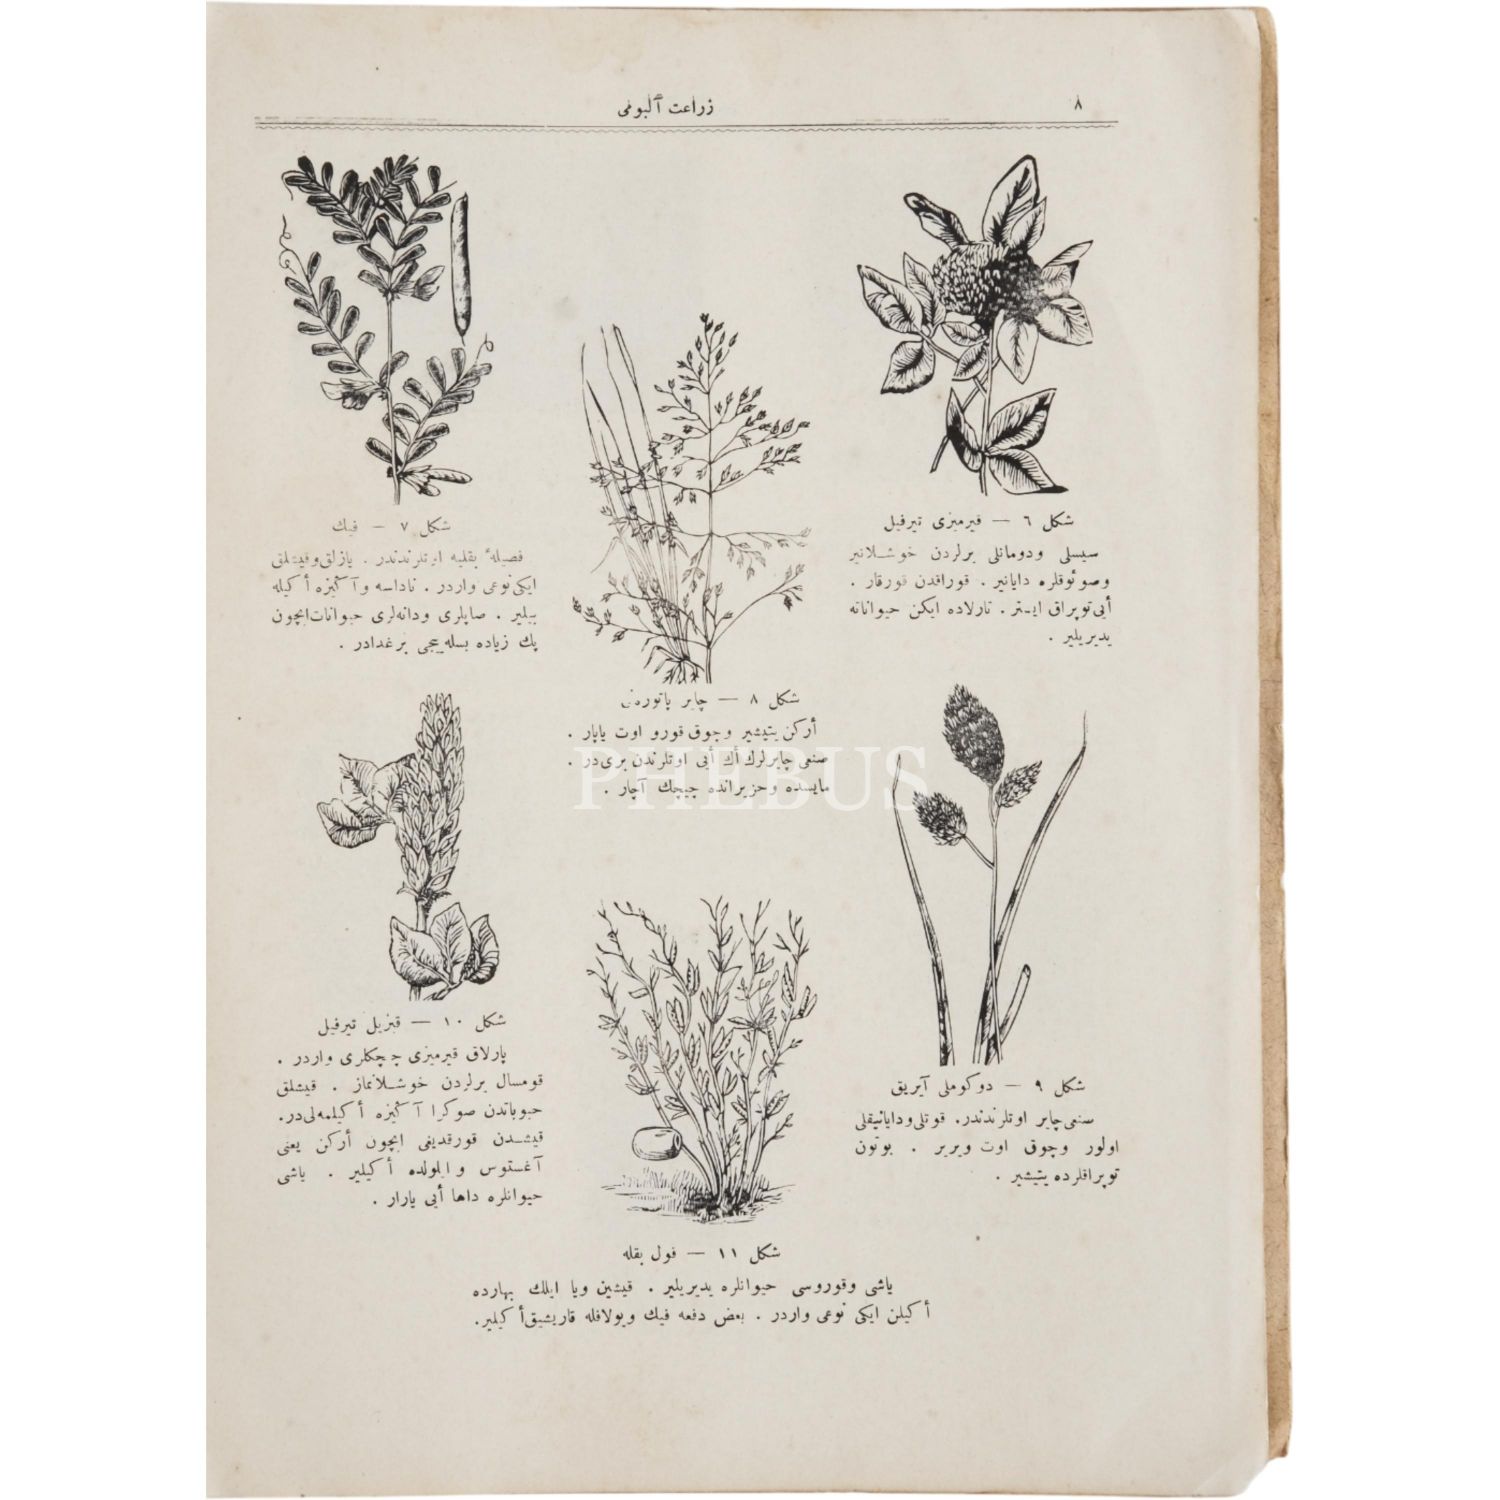 ٨
زراعت آلبومی
شكل ٦ — قیرمیزی تیرفیل
سیسلی ودومانلی یرلردن خوشلانیر
وصوئوقلره دایانیر. قوراقدن قورقار.
أیی توپراق ایستر. تارلاده ایكن حیواناته
یدیریلیر.
شكل ٧ — فیك
فصیلهٔ بقلیه اوتلرندندر. یازلق وقیشلق
ایكی نوعی واردر. ناداسه وآ كیزه أ كیله
بیلیر. صاپلری ودانه‌لری حیوانات ایچون
پك زیاده بسله‌ییجی بر غدادر.
شكل ٨ — چایر
أركن یتیشیر وچوق قورو اوت یاپار.
صنعی چایرلرك أك أیی اوتلرندن بری در.
مایسده وحزیرانده چیچك آچار.
PHEBUS
شكل ٩ — دوكوملی آیریق
صنعی چایر اوتلرندندر. قوتلی ودایانیقلی
اولور وچوق اوت ویریر. بوتون
توپراقلرده یتیشیر.
شكل ١٠ — قیزیل تیرفیل
پارلاق قیرمیزی چیچكلری واردر.
قومسال یرلردن خوشلانماز. قیشلق
حبوباتدن صوكرا آ كیزه أ كیلمه‌لی در.
قیشدن قورقدیغی ایچون أركن یعنی
آغستوس و ایلولده أ كیلیر. یاشی
حیوانلره داها أیی یارار.
شكل ١١ — فول بقله
یاشی وقوروسی حیوانلره یدیریلیر. قیشین ویا ایلك بهارده
أ كیلن ایكی نوعی واردر. بعض دفعه فیك ویولافله قاریشیق أ كیلیر.